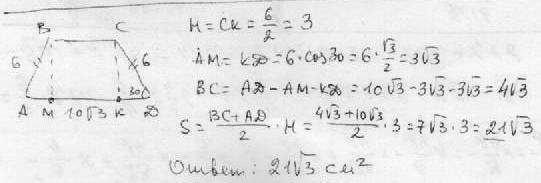 B C
6 6
30
A M 10√3 K D
H = CK = 6/2 = 3
AM = KD = 6 · cos30 = 6 · √3/2 = 3√3
BC = AD - AM - KD = 10√3 - 3√3 - 3√3 = 4√3
S = (BC + AD)/2 · H = (4√3 + 10√3)/2 · 3 = 7√3 · 3 = 21√3
Ответ: 21√3 см²